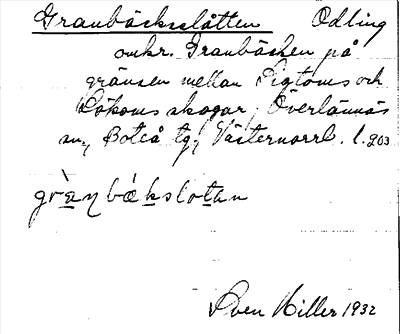 Granbäcksslåtten Odling
omkr. Granbäcken på
gränsen mellan Sigtoms och
Sökoms skogar, Överlännäs
sn, Boteå tg, Västernorrl. l. 203
grὰnbækslotən
Sven Hiller 1932